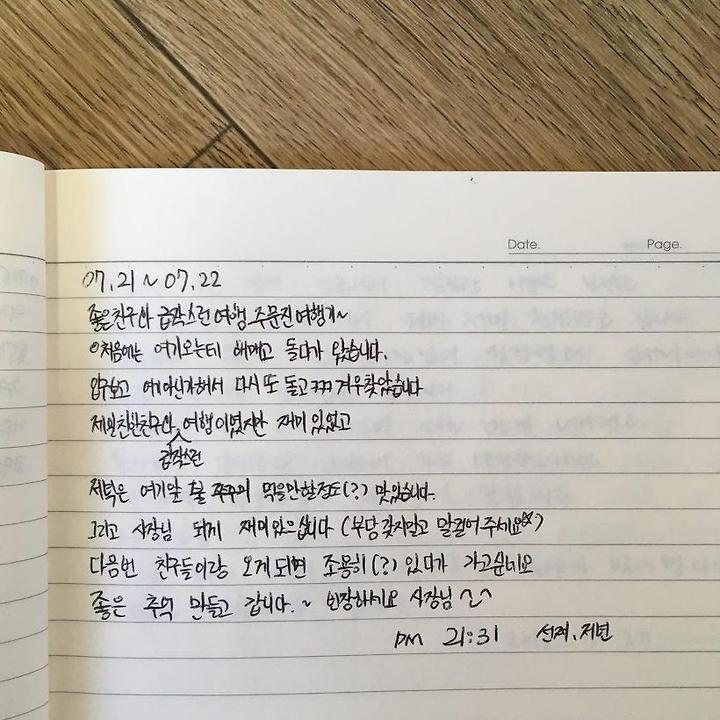 Date. Page.
07.21 ~ 07.22
좋은친구와 급작스런 여행. 주문진여행기~
처음에는 여기오는데 헤매고 돌다가 왔습니다.
입구보고 여기아닌가해서 다시 또 돌고 겨우찾았습니다
제일친한친구와 여행이였지만 재미있었고
급작스런
저녁은 여기말 먹을만할정도(?) 맛있습니다.
그리고 사장님 되게 재미있으십니다 (부담갖지말고 말걸어주세요☆)
다음번 친구들이랑 오게되면 조용히(?) 있다가 가고싶네요
좋은 추억 만들고 갑니다.~ 번창하세요 사장님 ^_^
PM 21:31